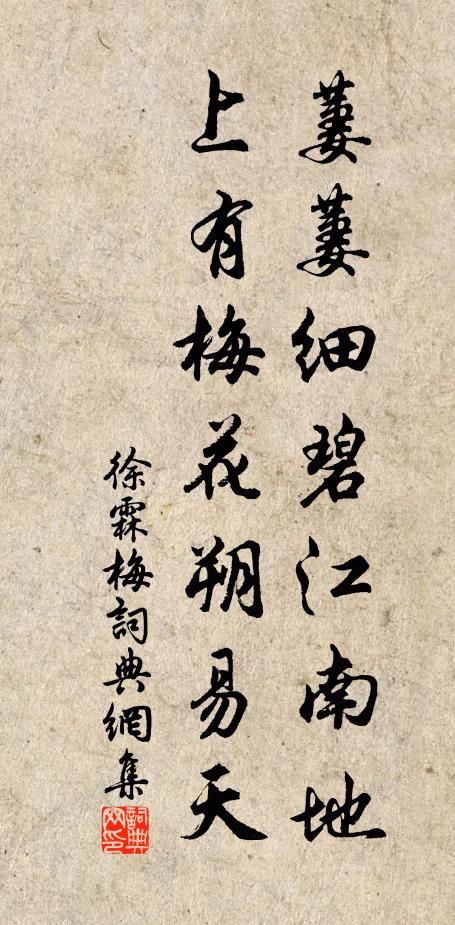 萋萋细碧江南地
上有梅花朔易天
徐霖梅詞典網集
詞典网印